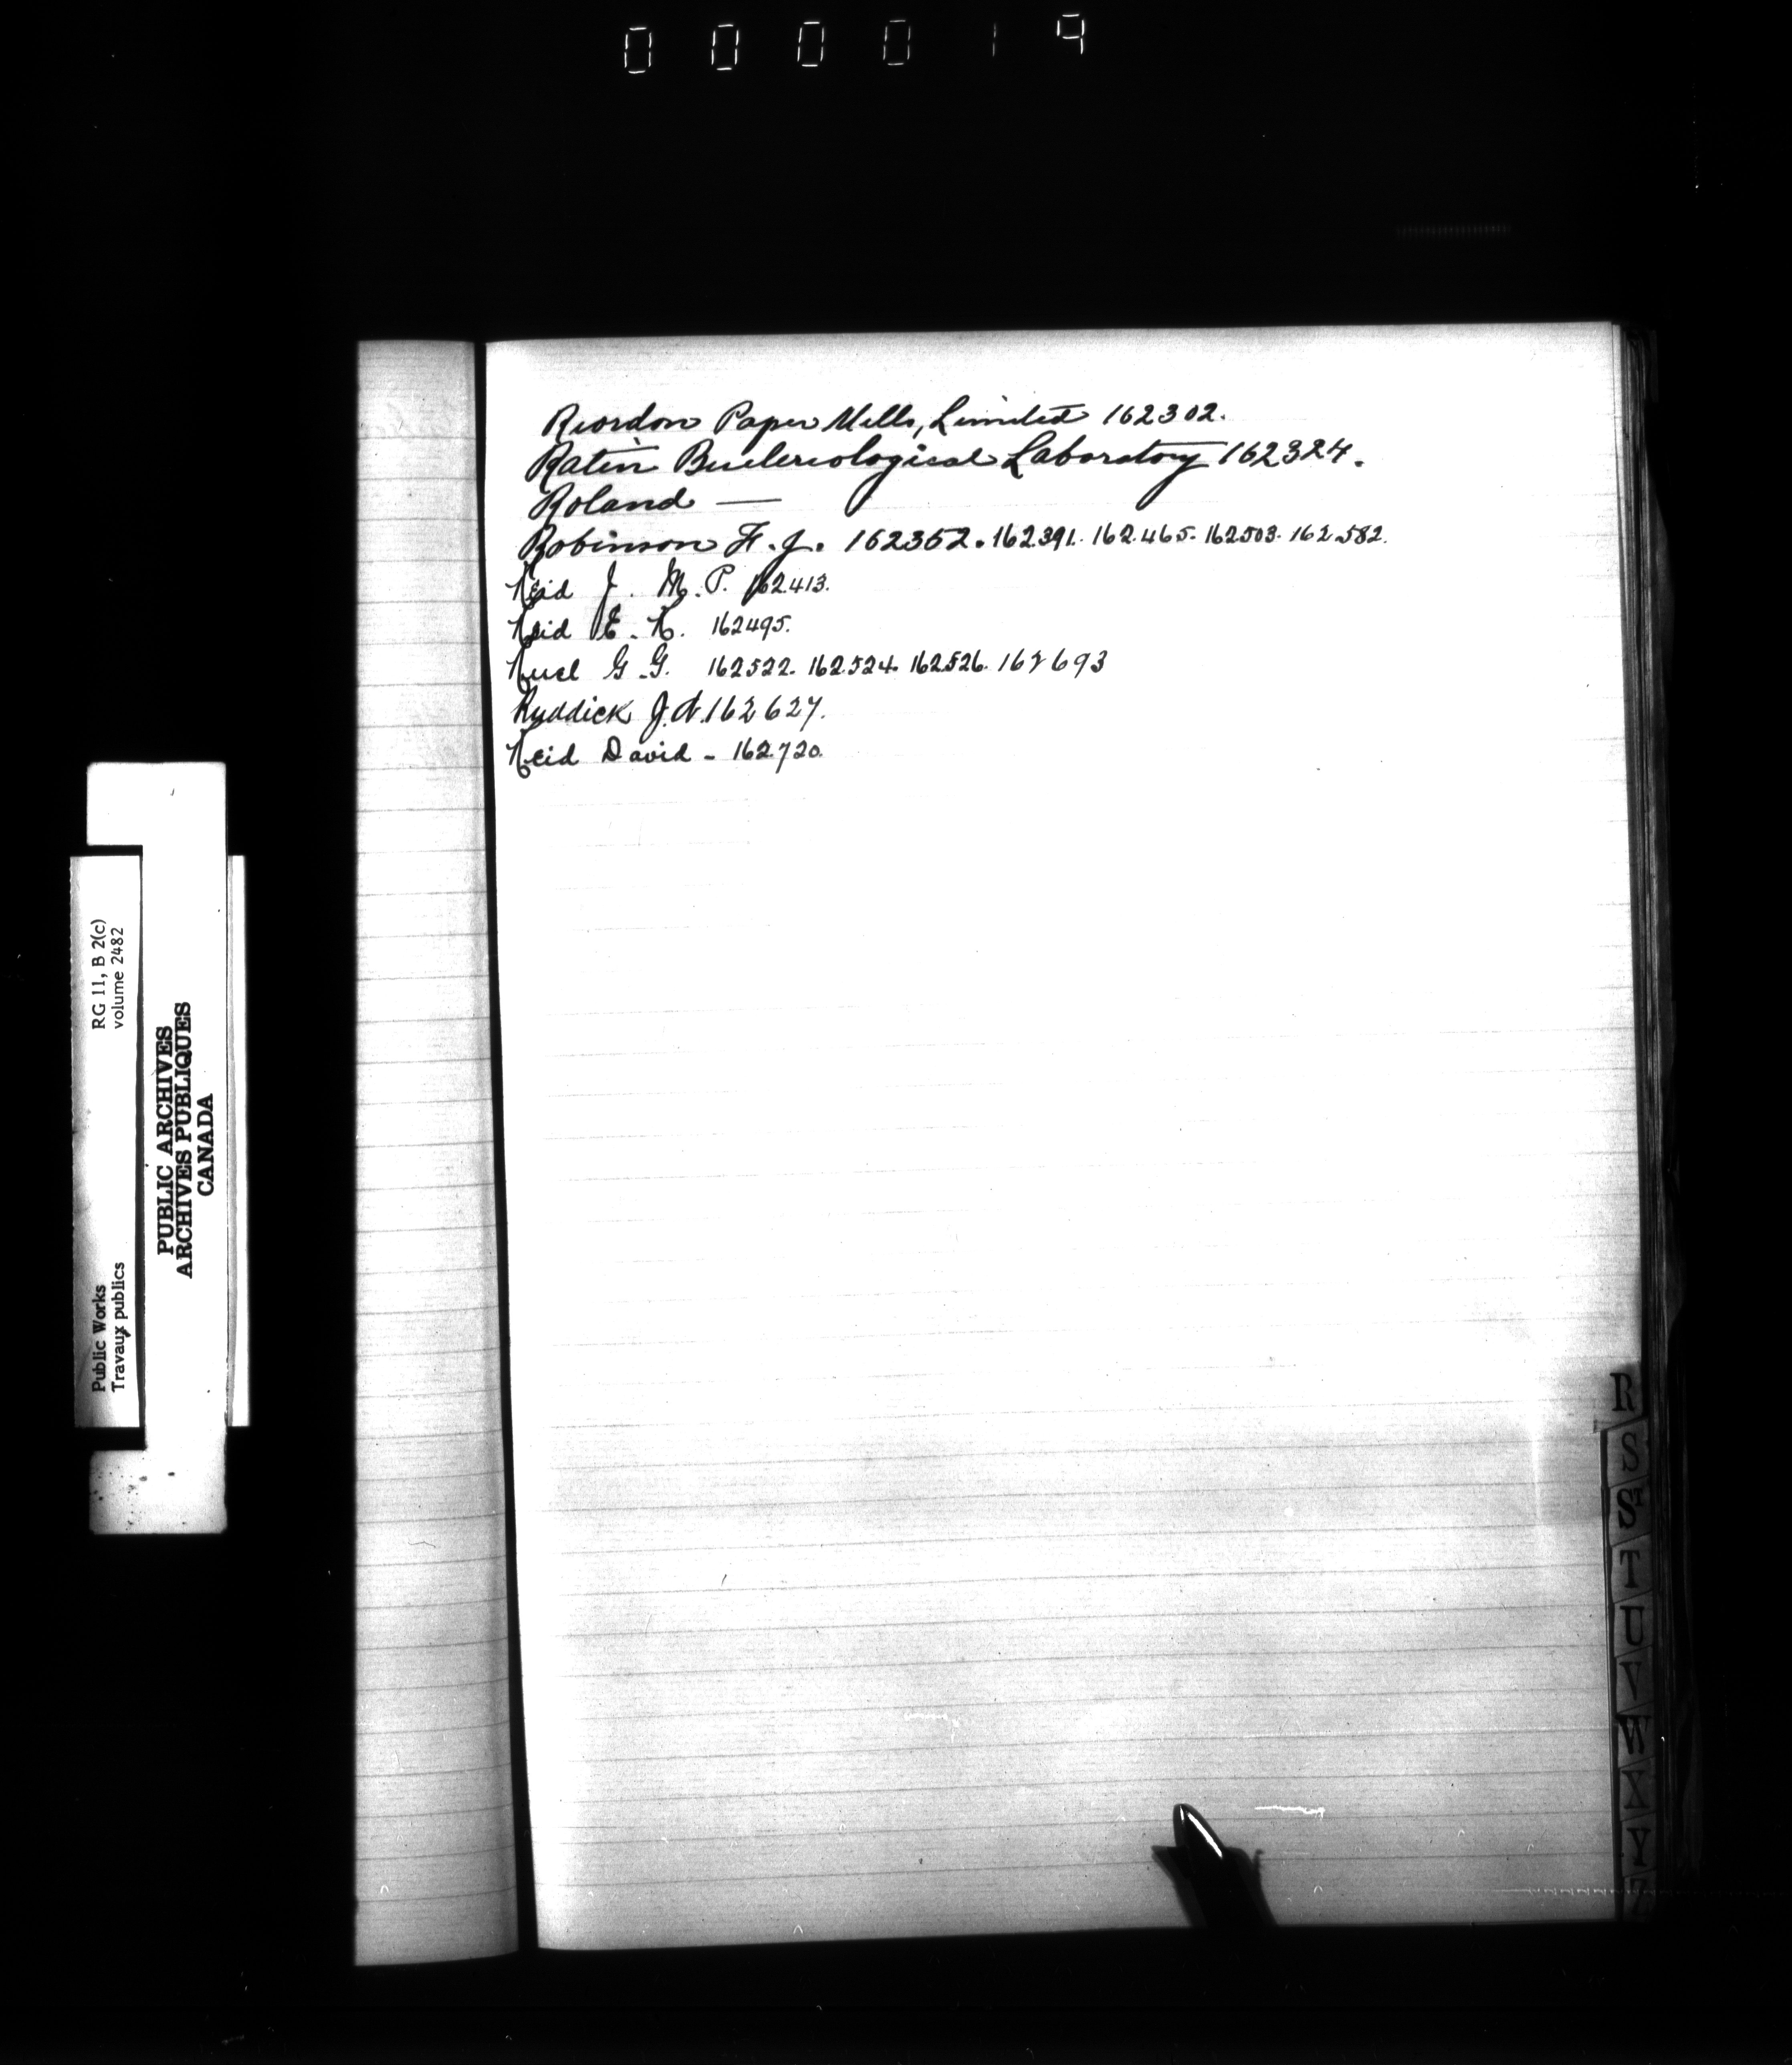 0 0 0 0 1 9
Riordon Paper Mills, Limited 162302.
Ratin Bacteriological Laboratory 162324.
Roland —
Robinson F. J. 162352. 162391. 162465. 162503. 162582.
Reid J. M. P. 162413.
Reid E. R. 162495.
G. G. 162522. 162524. 162526. 162693
Ruddick J. A. 162627.
Reid David - 162720.
R
S
St
T
U
V
W
X
Y
Z
Public Works RG 11, B 2(c)
Travaux publics volume 2482
PUBLIC ARCHIVES
ARCHIVES PUBLIQUES
CANADA